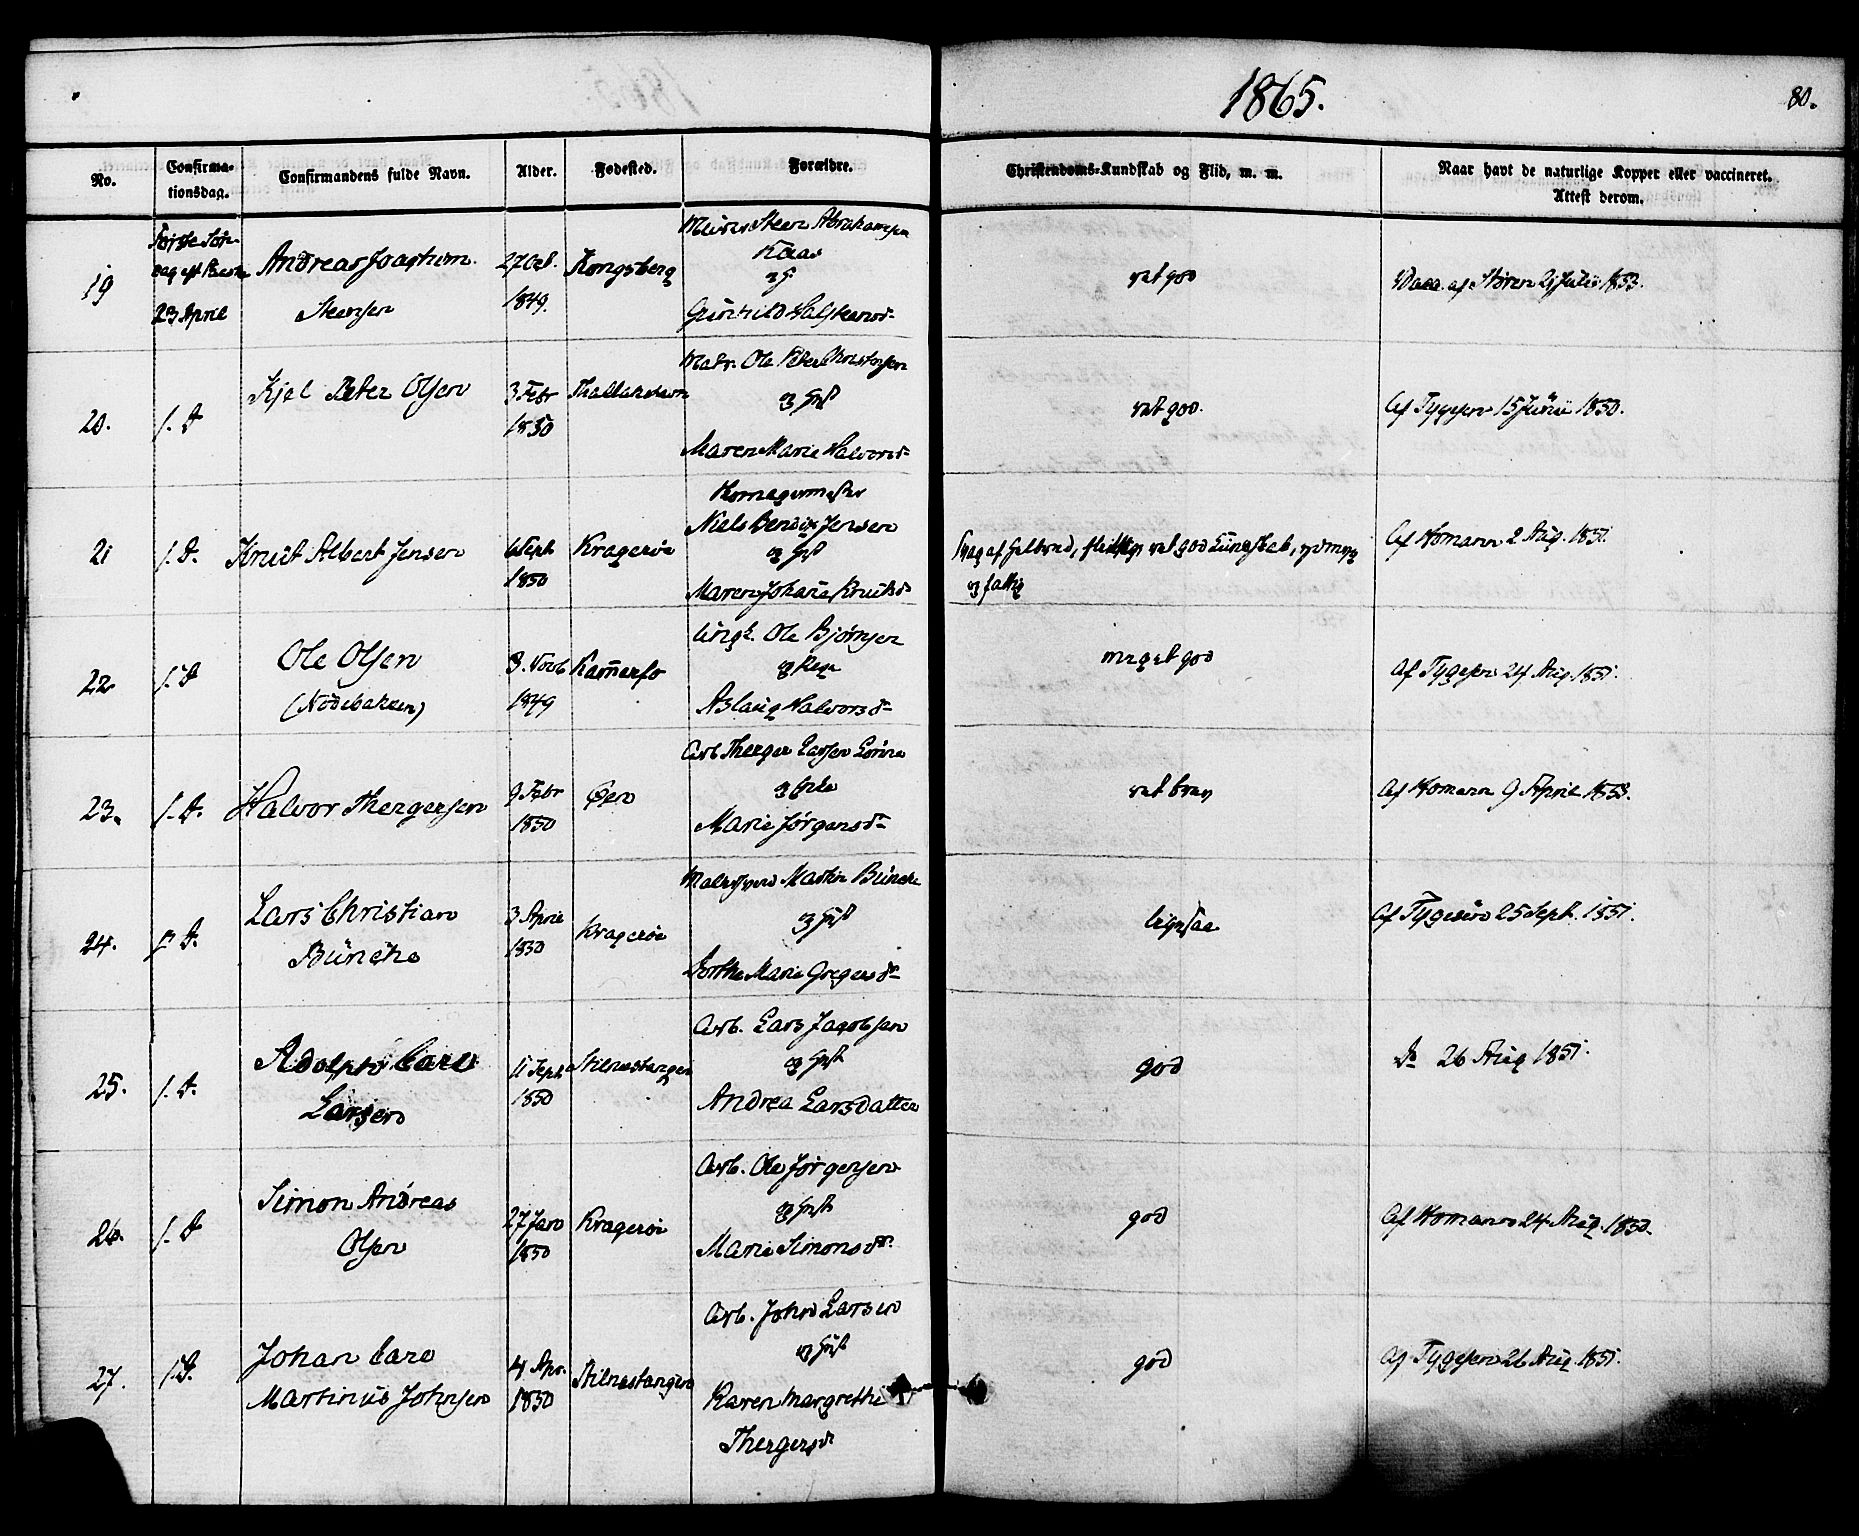 1865.
80.
No.
Confirma-
tionsdag.
Confirmandens fulde Navn.
Alder.
Fødested.
Forældre.
Christendoms-Kundskab og Flid, m. m.
Naar havt de naturlige Kopper eller vaccineret.
Attest derom.
19
23 April
Andreas Joachim
Steensen
27 Oct.
1849.
Kongsberg
Steen Abrahamsen
Kaas
og
Gunhild
vel god
Vacc. af Støren 21 Juli 1853.
20.
f. D
Kjel Peter Olsen
3 Febr
1850
Matr. Ole Peter Christensen
og Hust
Maren Marie Halvorsd
vel god.
Af Tygesen 15 Juni 1850.
21
f. D.
Knut Albert Jensen
6 Sept
1850
Kragerøe
Niels Bendix Jensen
og Hust
Maren Johane Knutsd
Svag af Helbred, flittig, vel god Kundskab,
og fattig
Af Homann 2 Aug. 1851.
22
f. D
Ole Olsen
(Nødebakken)
8. Novb
1849
Kammerfo
Ungk. Ole Bjørnsen
og Pige
Aslaug Halvorsd
meget god
Af Tygesen 24 Aug. 1851.
23.
f. D.
Halvor Thergersen
9 Febr
1850
Øen
Arb Therger Larsen
og Enke
Marie Jørgensd
vel brav
Af Homann 9 April 1853.
24.
D.
Lars Christian
Büncke
3 April
1850
Kragerøe
Malersvend Martin Büncke
og Hust
Dorthe Marie Gregersd
ligesaa
Af Tygesen 25 Sept. 1851.
25.
f. D.
Adolph Carl
Larsen
11 Sept
1850
Stilnestangen
Arb. Lars Jacobsen
og Hust
Andrea Larsdatter
god
Do 26 Aug 1851.
26.
f. D
Simon Andreas
Olsen
27 Jan
1850
Kragerøe
Arb. Ole Jørgensen
og Hust
Marie Simonsd.
god
Af Homann 24 Aug. 1850.
27.
f. D.
Johan Carl
Martinus Johnsen
4 Apr.
1850
Stilnestangen
Arb. John Larsen
og Hust
Karen Margrethe
Thergersd
god
Af Tygesen 26 Aug. 1851.